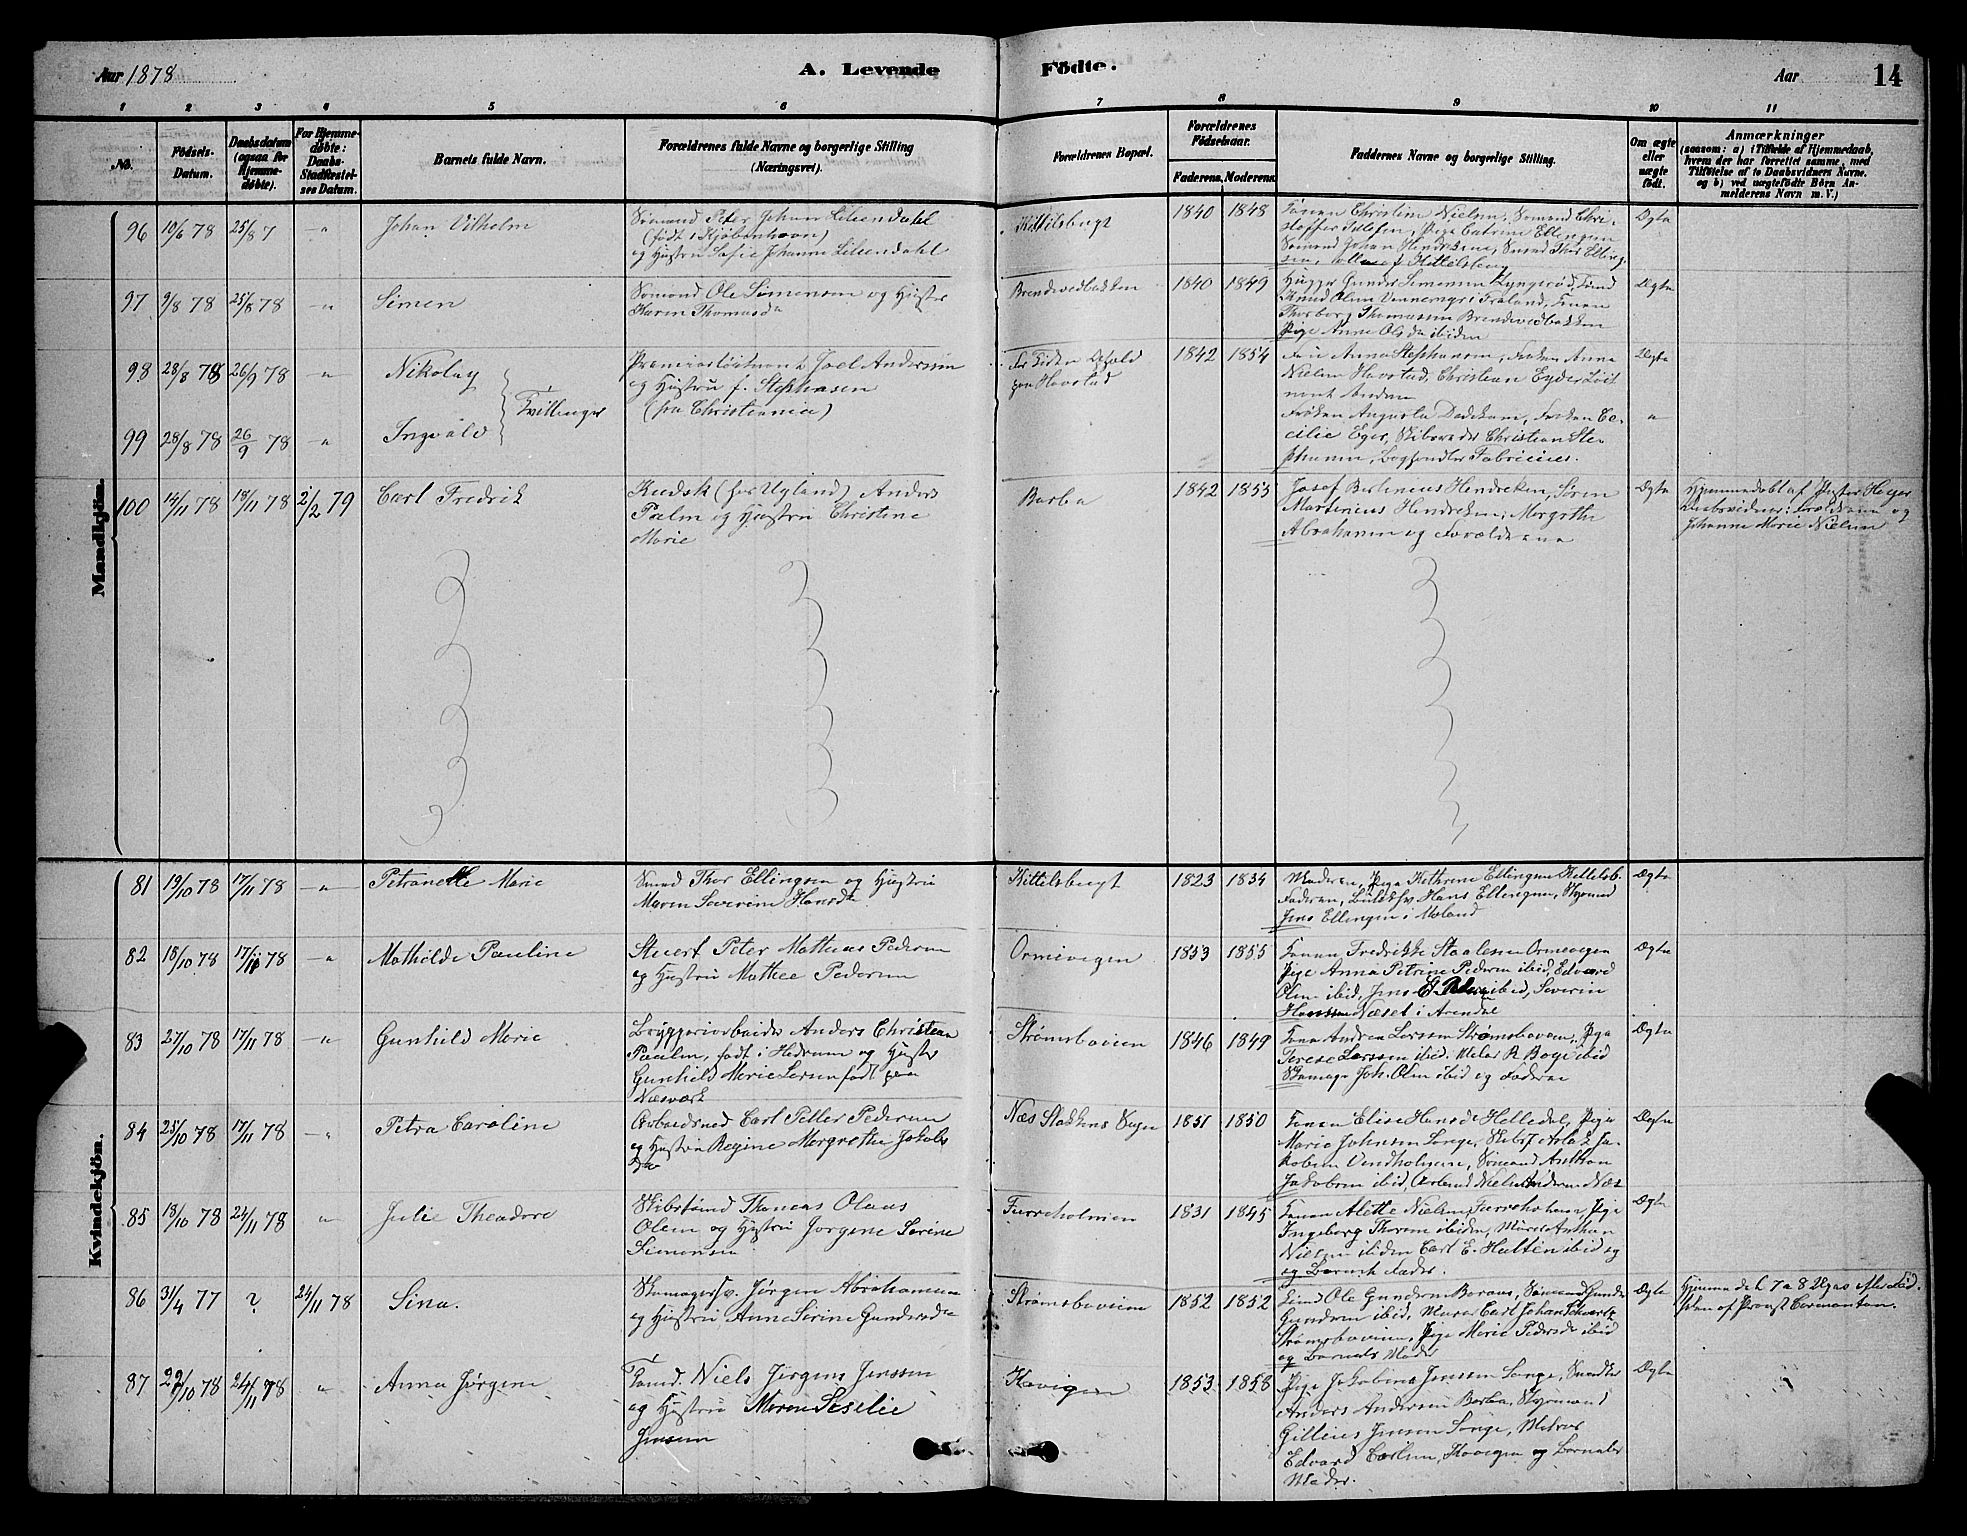 Aar 1878
A. Levende Födte.
Aar
14
1 2 3 4 5 6 7 8 9 10 11
No.
Födsels-Datum.
Daabsdatum (ogsaa for Hjemmedöbte).
For Hjemmedöbte: Daabs-Stadfæstelses Datum.
Barnets fulde Navn.
Forældrenes fulde Navne og borgerlige Stilling (Næringsvei).
Forældrenes Bopæl.
Forældrenes Födselsaar.
Faderens. Moderens.
Faddernes Navne og borgerlige Stilling.
Om ægte eller uægte födt.
Anmærkninger (saasom: a) i Tilfælde af Hjemmedaab, hvem der har forrettet samme, med Tilföielse af to Daabsvidners Navne, og b) ved uægtefödte Börn Anmelderens Navn m. V.)
Mandkjön.
96 10/6 78 25/8 7 -"- Johan Vilhelm
Sömand Peter Johan Liliendahl
(født i Kjøbenhavn)
og Hustru Sofie Johanne Liliendahl
Kittelsbugt 1840 1848
Konen Christine Nielsen, Sömand Chri-
stoffer Tellefsen, Pige Catrine Ellingsen
Sömand Johan Hendriksen, Sömand Thor Elling-
sen, alle af Kittelsbug
Ægte
97 9/8 78 25/8 78 " Simen
Sömand Ole Simonsen og Hustru
Karen Thomasd
Brendevedbakken 1840 1849
Knud Olsen
Thorborg Thomassen Brendevedbakken
Pige Anne Olsd ibiden
Ægte
98 28/8 78 26/9 78 " Nikolay
Tvillinger
Premierløitnant Joel Anderssen
og Hustru f. Stephansen
(fra Christiania)
1842 1854
Frue Anna Stephansen, Frøken Anna
Nielsen Havstad, Christian Eyde, Löit-
nant
Ægte
99 28/8 78 26/9 78 " Ingvald
Frøken Augusta Dedekam, Frøken Ce-
cilie Eger, Christian Ste-
phansen, Fabricius.
"
100 14/11 78 18/11 78 2/2 79 Carl Fredrik
Kudsk (for Ugland) Anders
Palm og Hustru Christine
Marie
Barbu 1842 1855
Josef Berlinius Hendriksen, Sören
Martinius Hendriksen, Margrethe
Abrahamsen og Forældrene
Ægte
Hjemmedøbt af Pastor
Daabsvidner: Forældrene og
Johanne Marie Nielsen
Kvindekjön.
81 19/10 78 17/11 78 -"- Petranelle Marie
Sömand Thor Ellingsen og Hustru
Maren Severine Hansd
Kittelsbugt 1823 1834
Moderen, Pige Kathrine Ellingsen Kittelsb.
Faderen, Hans Ellingsen, Styrmand
Jens Ellingsen i Moland
Ægte
82 18/10 78 17/11 78 -"- Mathilde Pauline
Stuert Peter Mathias Pedersen
og Hustru Mathea Pedersen
Ormevigen 1853 1855
Konen Fredrikke Staalesen Ormevigen
Pige Anna Petrine Pedersen ibid, Edvard
Olsen ibid, Jens ibid, Severin
Næset i Arendal
Ægte
83 27/10 78 17/11 78 -"- Gunhild Marie
Bryggeriarbeider Anders Christian
Paulsen, født i Hedrum og Hustru
Gunhild Marie Larsen født paa
Næsværk
Strømsbovien 1846 1849
Kone Andrea Larssen Strømsbovien, Pige
Terese Larssen ibid.
Skomager Joh. Olsen ibid og Faderen
Ægte
84 25/10 78 17/11 78 -"- Petra Caroline
Arbeidsmd Carl Petter Pedersen
og Hustru Regine Margrethe Jakobs
da
1851 1850
Konen Elise Hansd Helledal, Pige
Marie Johnsen Songe,
Vindholmen, Sömand Anthon
Jakobsen ibid,
Ægte
85 18/10 78 24/11 78 " Julie Theodore
Skibstømmd Thomas Olaus
Olsen og Hustru Jørgine Serine
Simonsen
Furreholmen 1831 1845
Konen Alette Nielsen, Furreholmen, Pige
Ingeborg Thorsen ibiden, Anthon
Nielsen ibiden Carl E. Hultén ibid og
og Barnets Fader.
Ægte
86 31/4 77 ? 24/11 78 Sina.
Skomagersv. Jørgen Abrahamsen
og Hustru Anne Serine Gundersda
Strømsbovien 1852 1852
Ole Gundersen Baraas, Sömand Gunder
Gundersen ibid, Carl Johan
Strømsbovien, Pige Marie Pedersd ibid
og Barnets Moder
Ægte
Hjemmed. 7 a 8 Uger efter Fød-
selen af Provst Cormontan.
87 22/10 78 24/11 78 " Anna Jørgine
Tømmd. Niels Jørgens Jenssen
og Hustru Maren Sesilie
Jensen
Kovigen 1853 1858
Pige Jakobine Jenssen Songe,
Anders Andersen Barbu, Styrmand
Jensen Songe,
Edvard Carlsen, Kovigen og Barnets
Moder.
Ægte